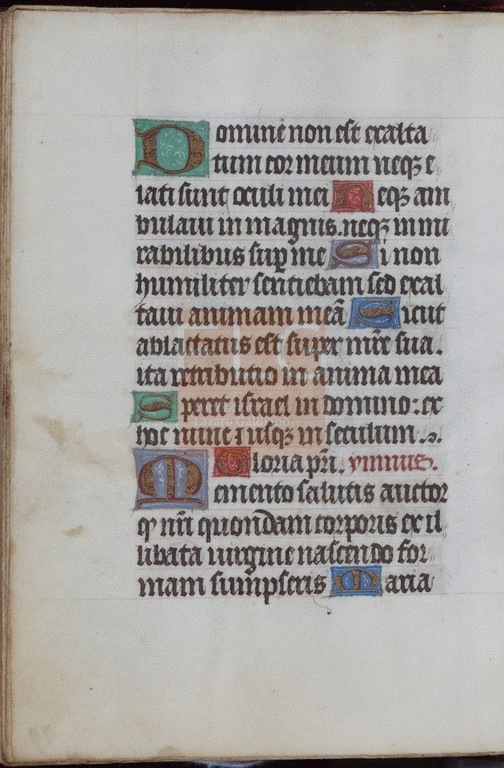 Domine non est exalta
tum cor meum neqꝫ e
lati sunt oculi mei Neqꝫ am
bulaui in magnis. neqꝫ in mi
rabilibus sup̲ me Si non
humiliter sentiebam sed exal
taui animam meã Sicut
ablactatus est super mr̃e sua.
ita retributio in anima mea
Speret israel in domino: ex
hoc nunc ⁊ usqꝫ in seculum.
Gloria pr̃i. ymnus.
Memento salutis auctor
qͥ nr̃i quondam corporis ex il
libata uirgine nascendo for
mam sumpseris Maria